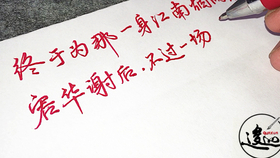 终于为那一身江南烟
容华谢后，不过一场